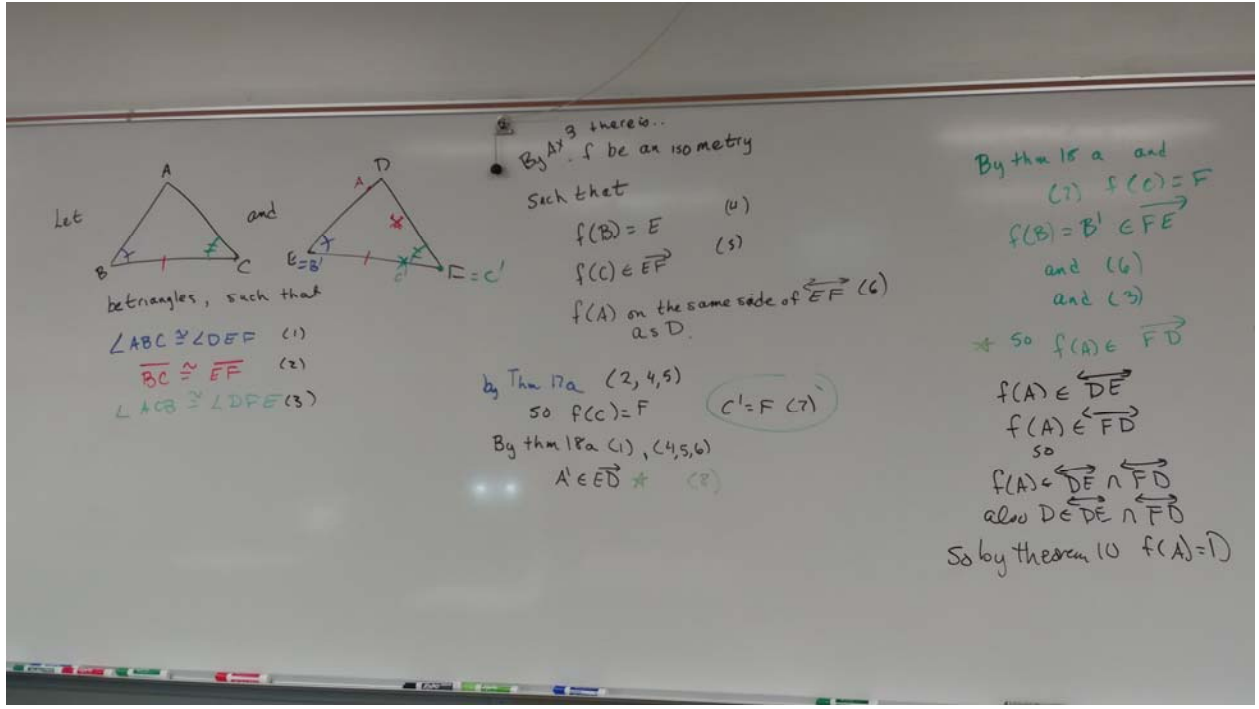 Let
A
B
C
and
D
A
E = B'
C'
F = C'
be triangles, such that
∠ABC ≅ ∠DEF (1)
\overline{BC} ≅ \overline{EF} (2)
∠ACB ≅ ∠DFE (3)
By AX 3 there is..
f be an isometry
Such that
f(B) = E (4)
f(C) ∈ \overrightarrow{EF} (5)
f(A) on the same side of \overleftrightarrow{EF} (6)
as D.
by Thm 17a (2, 4, 5)
so f(c) = F
C' = F (7)
By thm 18a (1), (4,5,6)
A' ∈ \overrightarrow{ED} ☆ (8)
By thm 18 a and
(7) f(c) = F
f(B) = B' ∈ \overrightarrow{FE}
and (6)
and (3)
☆ so f(A) ∈ \overrightarrow{FD}
f(A) ∈ \overleftrightarrow{DE}
f(A) ∈ \overleftrightarrow{FD}
so
f(A) ∈ \overleftrightarrow{DE} ∩ \overleftrightarrow{FD}
also D ∈ \overleftrightarrow{DE} ∩ \overleftrightarrow{FD}
So by theorem 10 f(A) = D